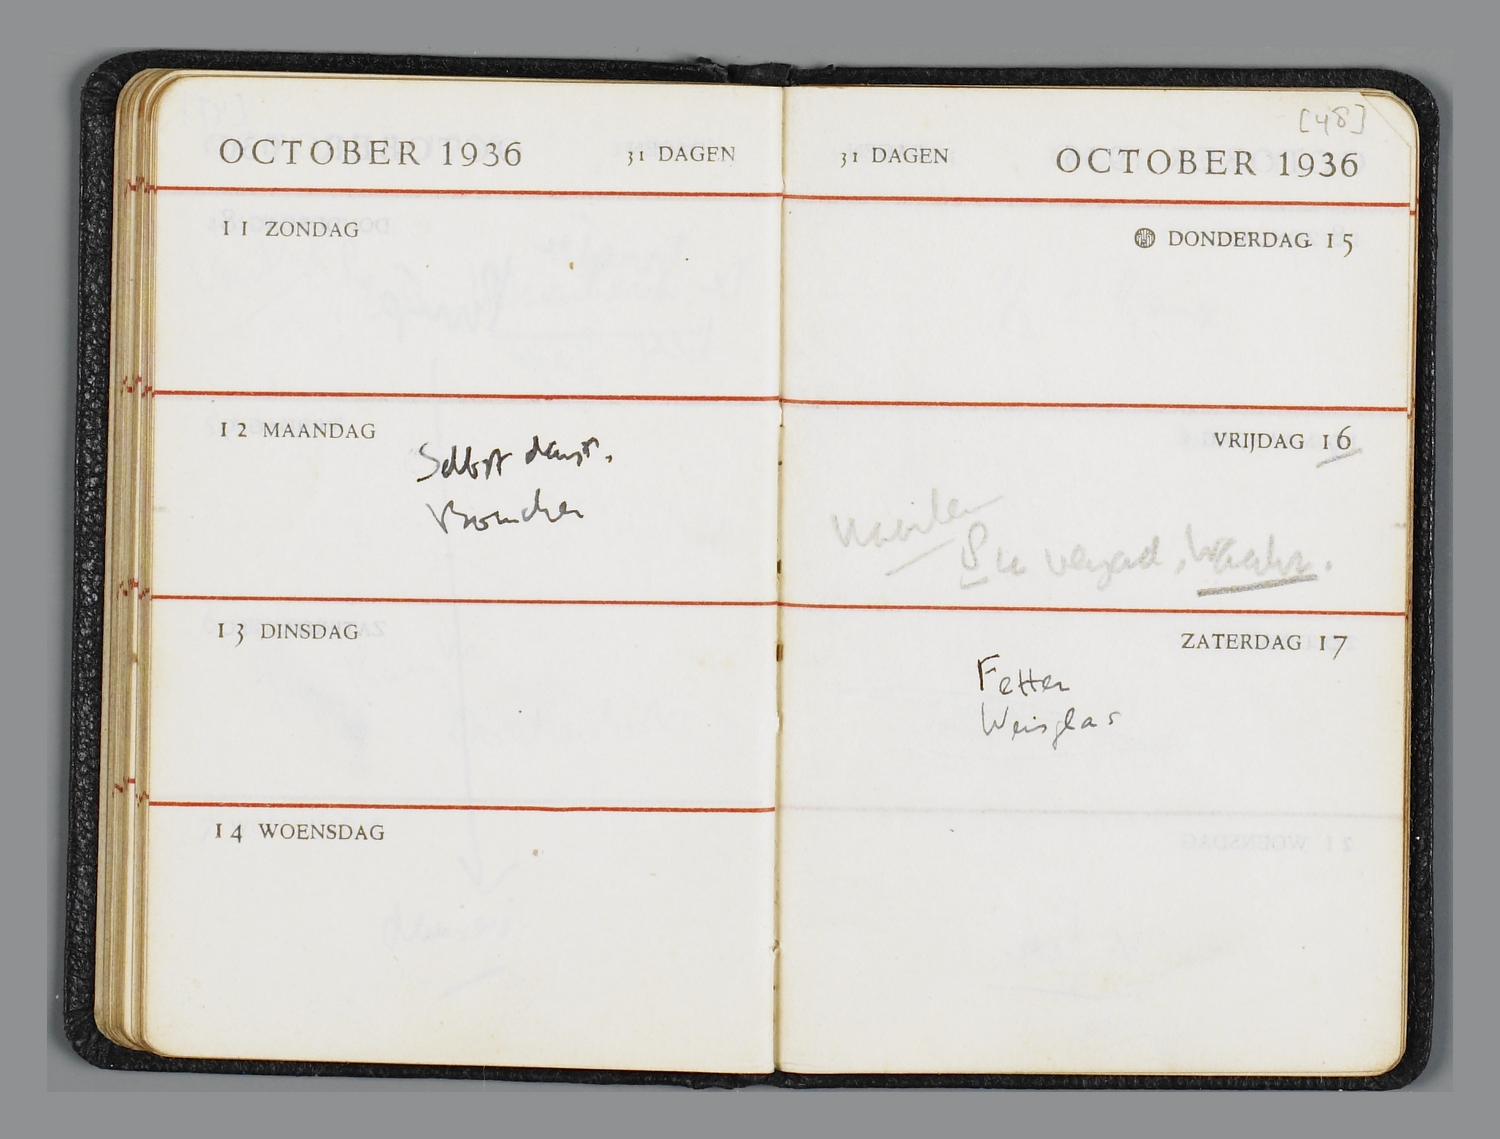 OCTOBER 1936 31 DAGEN
11 ZONDAG
12 MAANDAG
Selbst
13 DINSDAG
14 WOENSDAG
[48]
31 DAGEN OCTOBER 1936
DONDERDAG 15
VRIJDAG 16
vergad.
ZATERDAG 17
Fetter
Weisglas